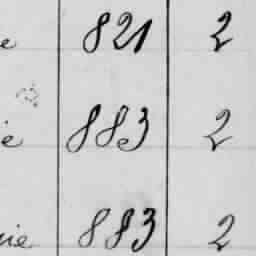 e 821 2
e 883 2
ie 883 2